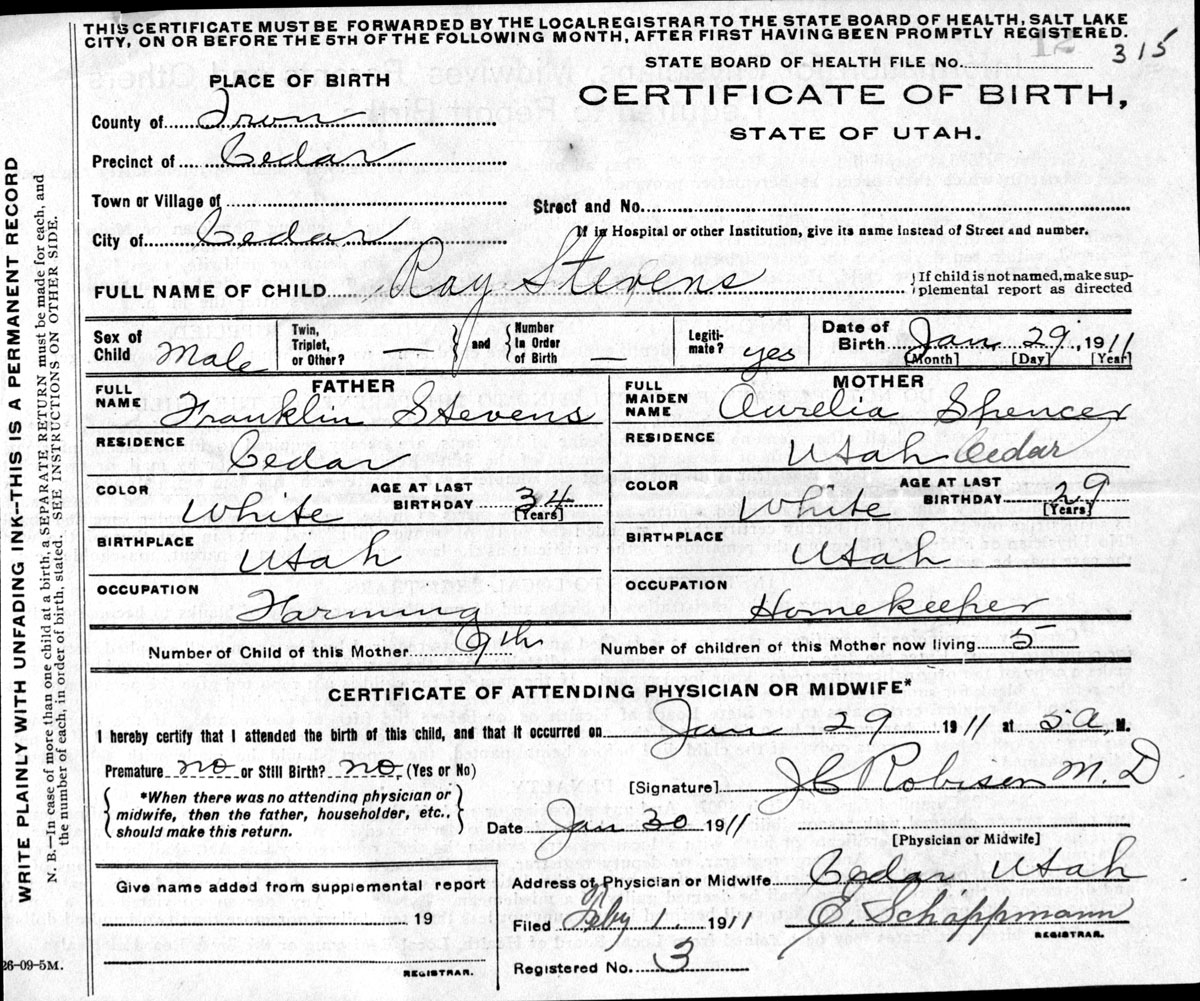 THIS CERTIFICATE MUST BE FORWARDED BY THE LOCAL REGISTRAR TO THE STATE BOARD OF HEALTH, SALT LAKE
CITY, ON OR BEFORE THE 5TH OF THE FOLLOWING MONTH, AFTER FIRST HAVING BEEN PROMPTLY REGISTERED.
12 315
STATE BOARD OF HEALTH FILE No.
PLACE OF BIRTH
CERTIFICATE OF BIRTH,
STATE OF UTAH.
County of Iron
Precinct of Cedar
Town or Village of
Street and No.
City of Cedar
If in Hospital or other Institution, give its name instead of Street and number.
FULL NAME OF CHILD Ray Stevens
If child is not named, make sup-
plemental report as directed
Sex of Child Male
Twin, Triplet, or Other? —
and
Number in Order of Birth
Legiti-mate? yes
Date of Birth Jan 29, 1911
[Month] [Day] [Year]
FATHER
FULL NAME Franklin Stevens
MOTHER
FULL MAIDEN NAME Aurelia Spencer
RESIDENCE Cedar
RESIDENCE Utah Cedar
COLOR White
AGE AT LAST BIRTHDAY 34
[Years]
COLOR White
AGE AT LAST BIRTHDAY 29
[Years]
BIRTHPLACE Utah
BIRTHPLACE Utah
OCCUPATION Farming
OCCUPATION Homekeeper
Number of Child of this Mother
Number of children of this Mother now living 5
CERTIFICATE OF ATTENDING PHYSICIAN OR MIDWIFE*
I hereby certify that I attended the birth of this child, and that it occurred on Jan 29 1911 at A, M.
Premature no or Still Birth? no, (Yes or No)
[Signature] M.D.
*When there was no attending physician or
midwife, then the father, householder, etc.,
should make this return.
Date Jan 30 1911
[Physician or Midwife]
Give name added from supplemental report
19
REGISTRAR.
Address of Physician or Midwife Cedar, Utah
Filed Feby 1, 1911 E. Schoppmann
REGISTRAR.
Registered No. 3
26-09-5M.
WRITE PLAINLY WITH UNFADING INK--THIS IS A PERMANENT RECORD
N. B.--In case of more than one child at a birth, a SEPARATE RETURN must be made for each, and
the number of each, in order of birth, stated. SEE INSTRUCTIONS ON OTHER SIDE.